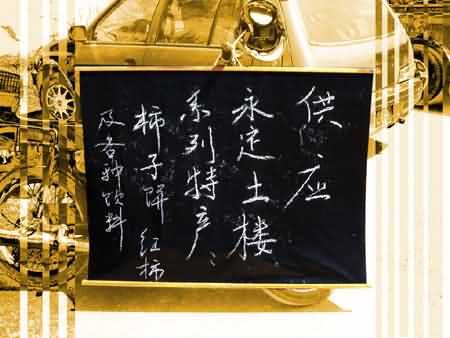 供应
永定土楼
系列特产、
柿子饼 红柿
及各种饮料